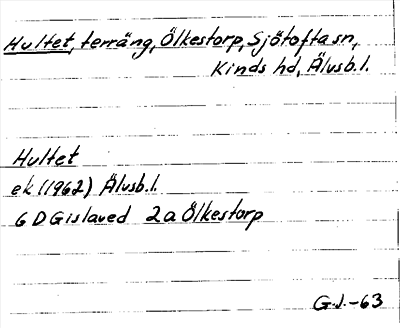 Hultet, terräng, Ölkestorp, Sjötofta sn,
Kinds hd, Älvsb.l.
Hultet
ek (1962) Älvsb.l.
6 D Gislaved 2a Ölkestorp
G.J.-63